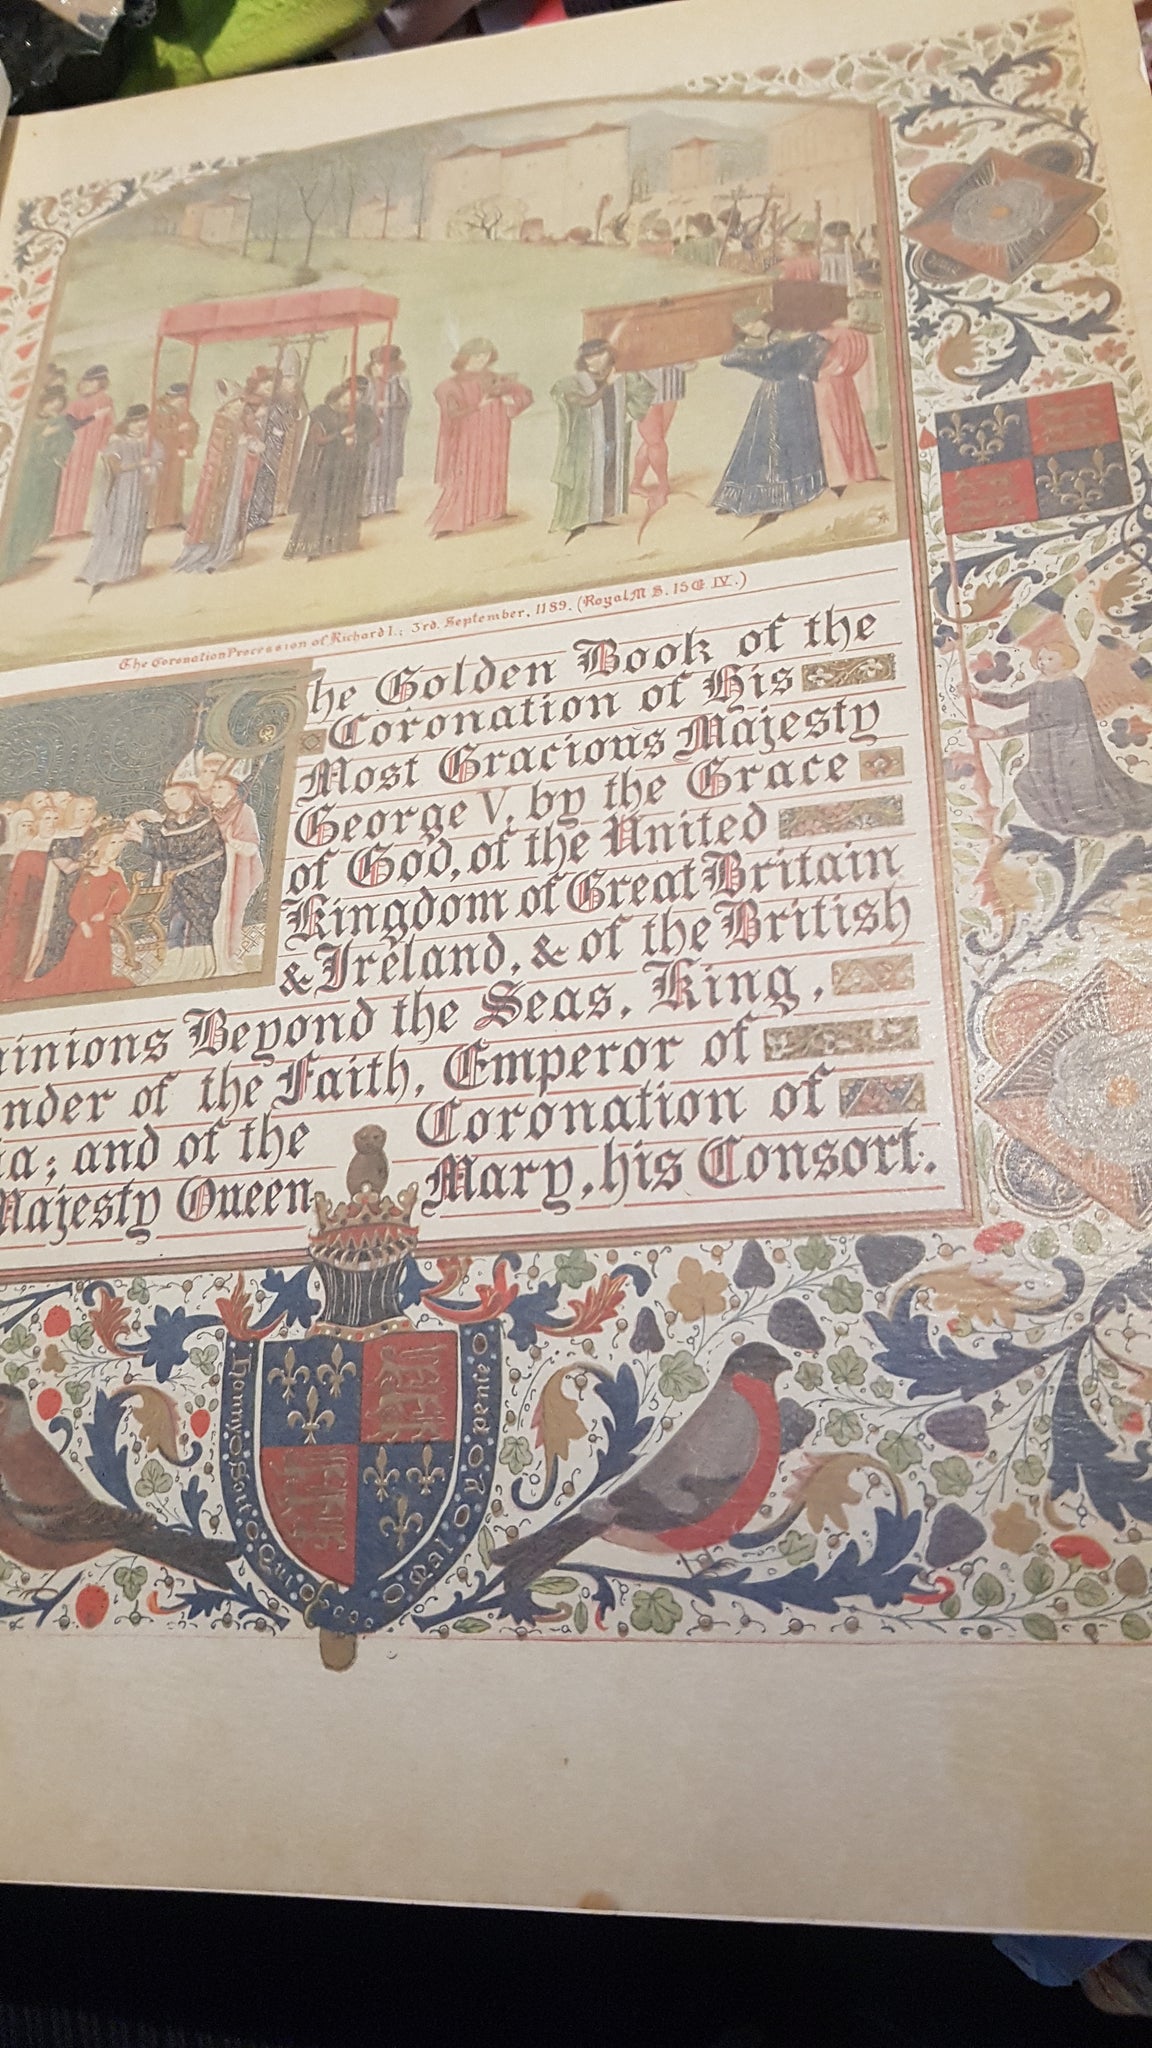 The Coronation Procession of Richard I.; 3rd. September, 1189. (Royal M S. 15 E IV.)
The Golden Book of the
Coronation of His
Most Gracious Majesty
George V, by the Grace
of God, of the United
Kingdom of Great Britain
& Ireland, & of the British
minions Beyond the Seas, King,
nder of the Faith, Emperor of
ia; and of the Coronation of
Majesty Queen Mary, his Consort.
Honni Soit Qui Mal Y Pense